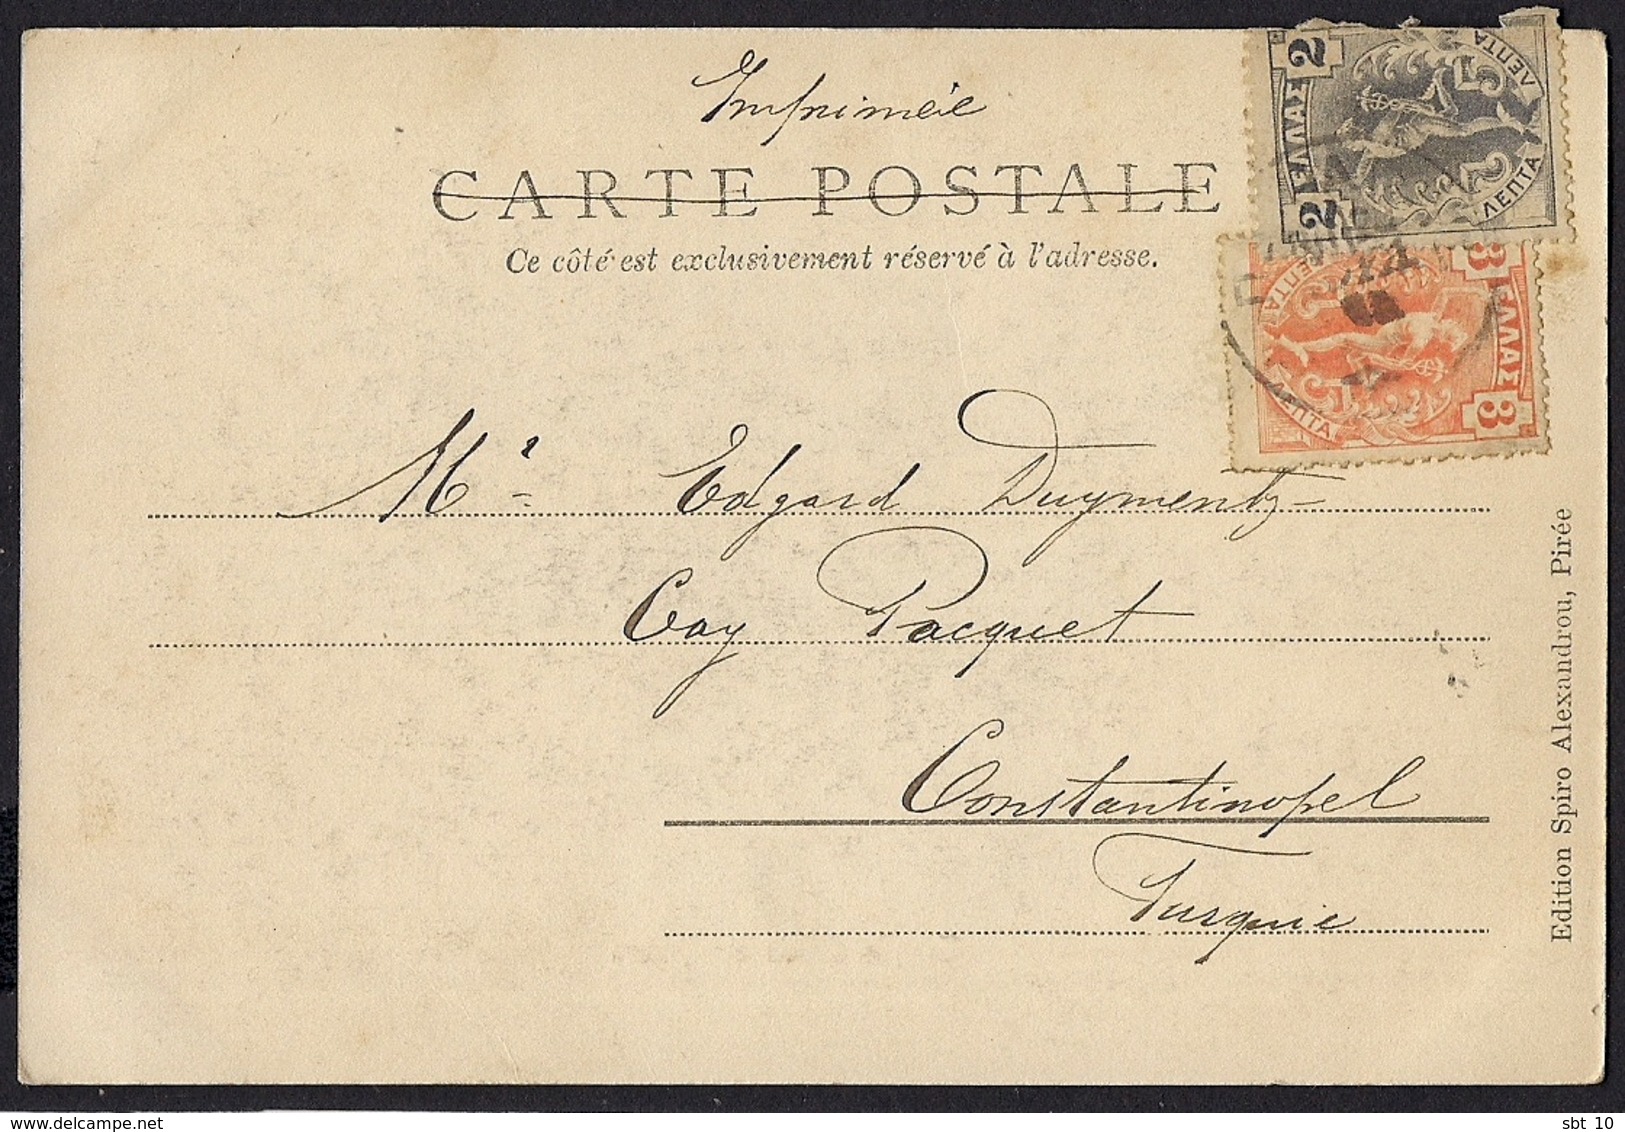 Impriméé
CARTE POSTALE
Ce côté est exclusivement réservé à l'adresse.
2 ΕΛΛΑΣ 2
ΛΕΠΤΑ 2 2 ΛΕΠΤΑ
3 ΕΛΛΑΣ 3
ΛΕΠΤΑ ΛΕΠΤΑ
Mr Edgard Duymentz
Coy Pacquet
Constantinopel
Turquie
Edition Spiro Alexandrou, Pirée
sbt 10